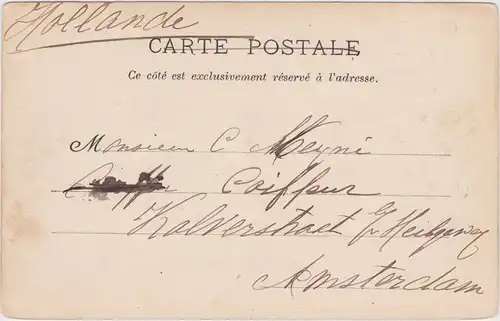 Hollande
CARTE POSTALE
Ce côté est exclusivement réservé à l'adresse.
Monsieur C Meyni
Coiffeur
Kalverstraat
Amsterdam